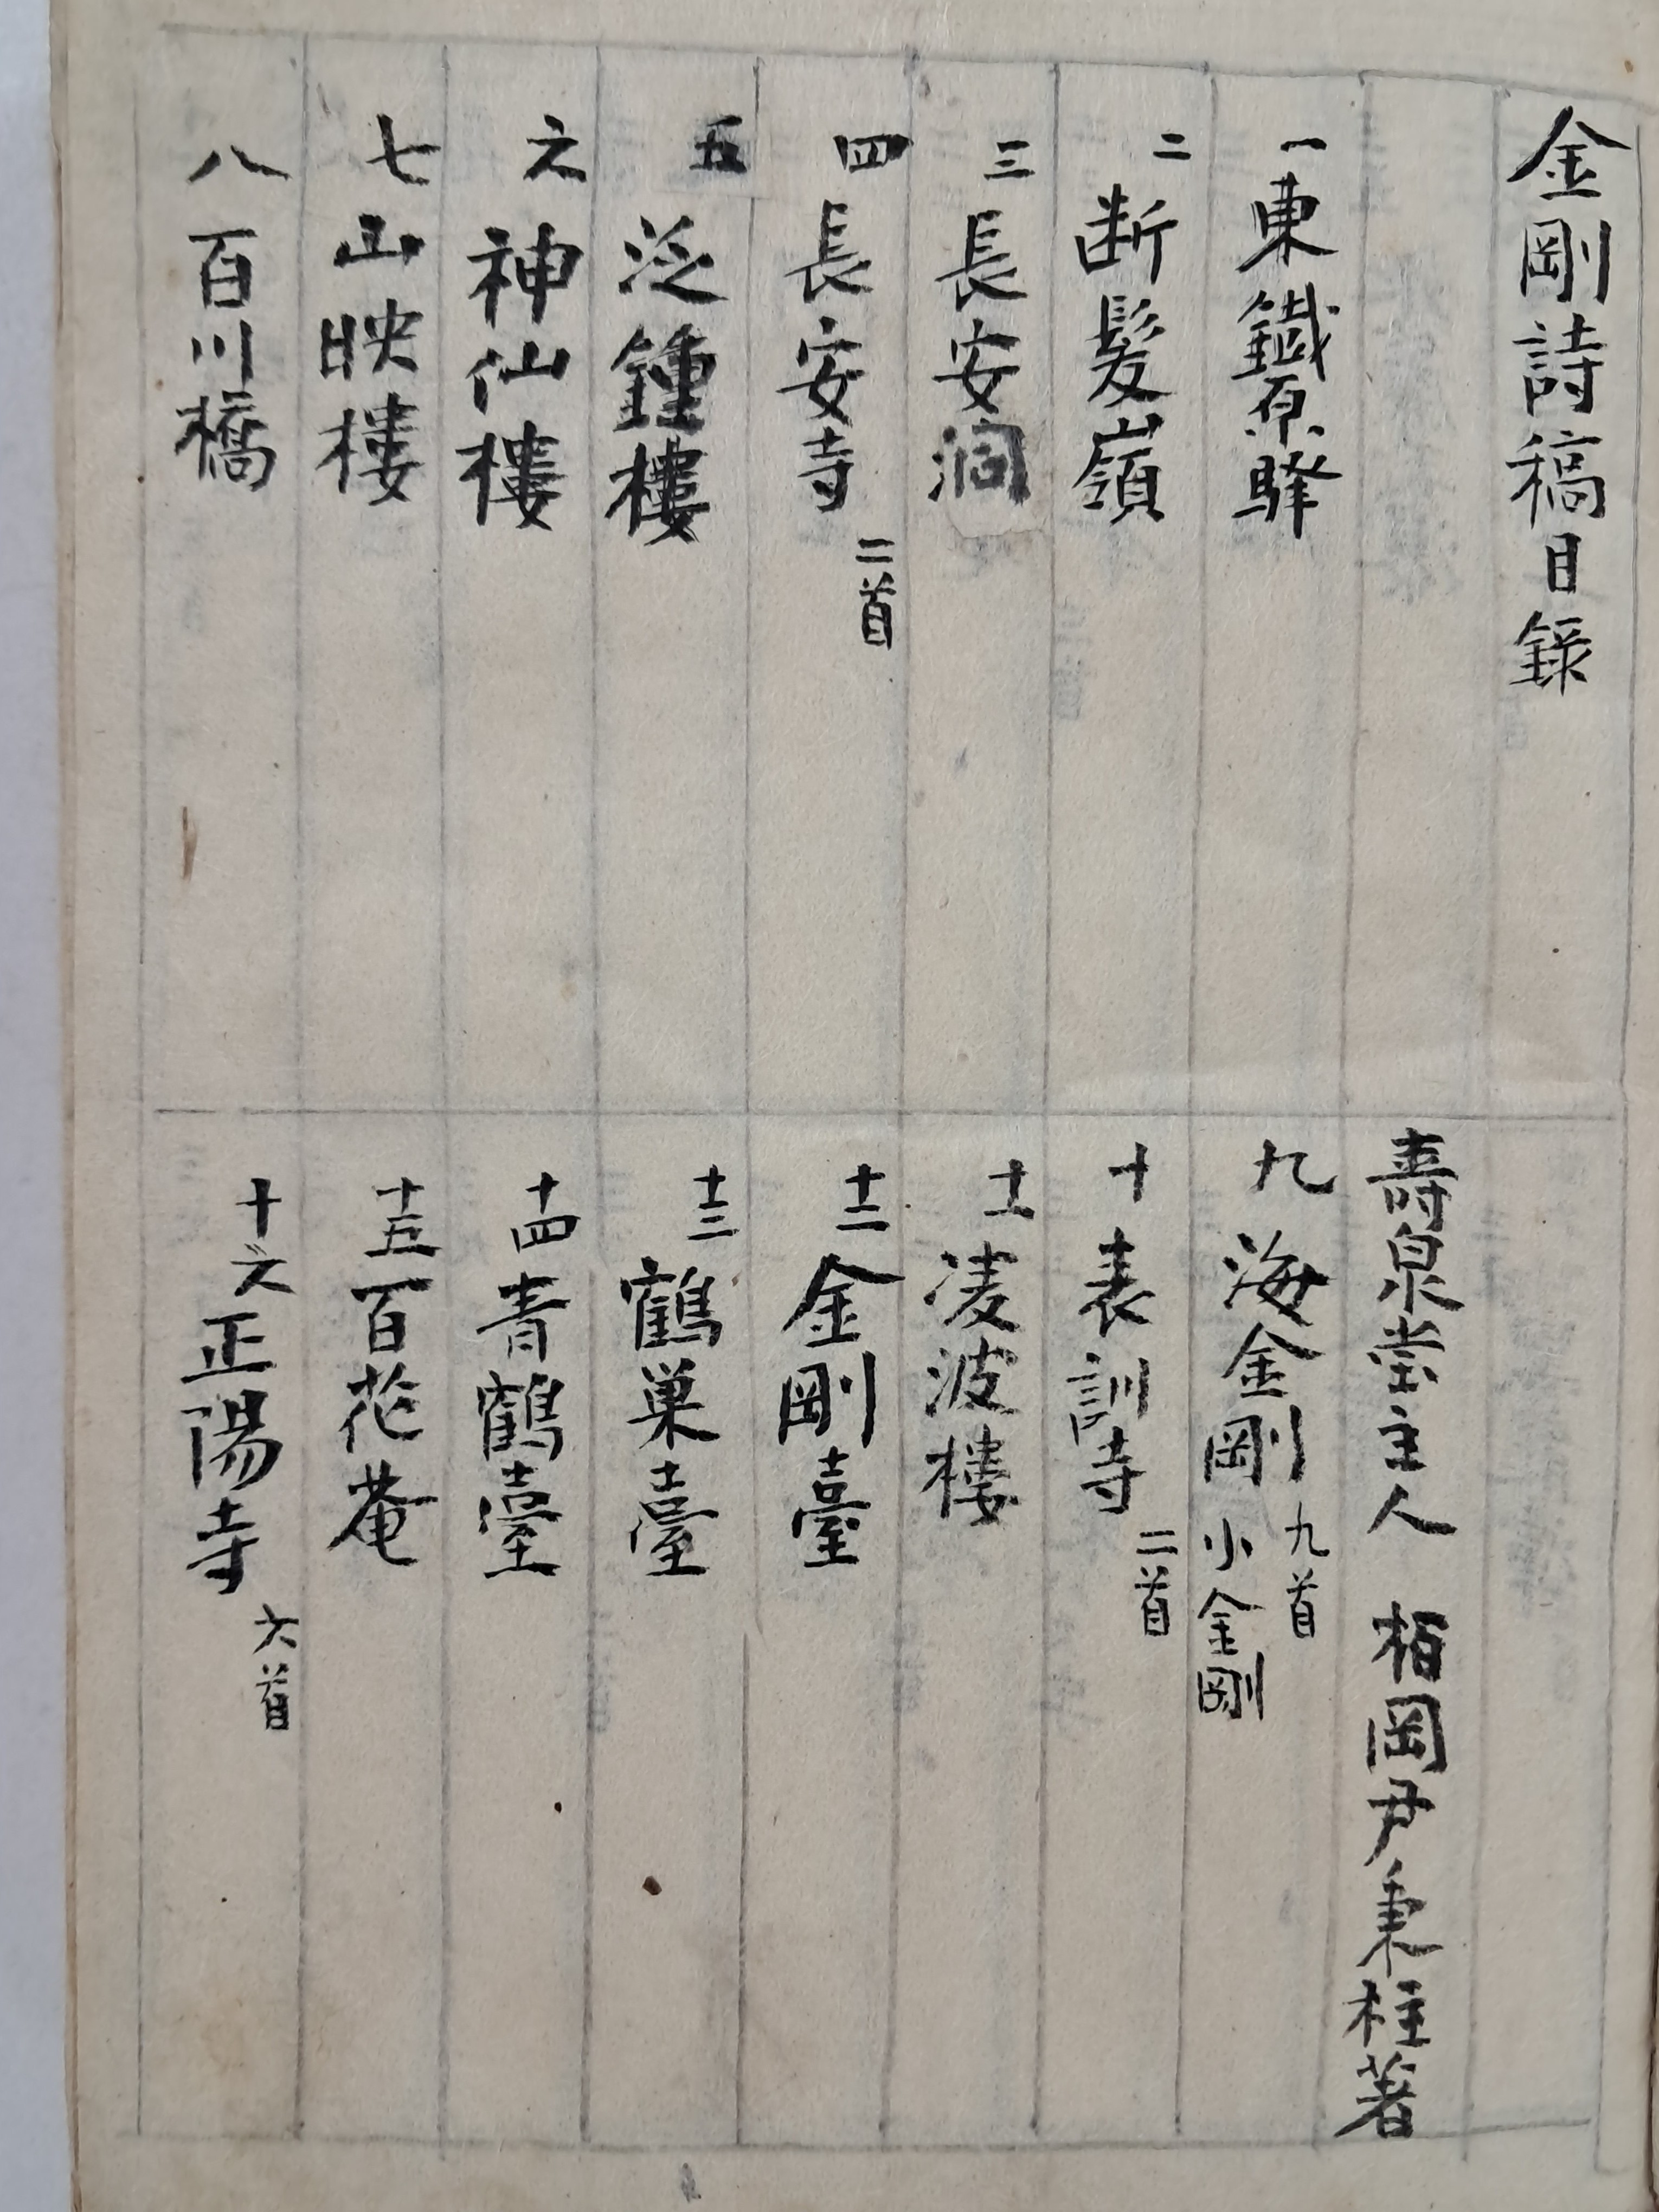 金剛詩稿目錄
壽泉堂主人 栢岡尹秉柱著
一 東鐵原驛
二 断髮嶺
三 長安洞
四 長安寺 二首
五 泛鍾樓
六 神仙樓
七 山映樓
八 百川橋
九 海金剛 九首 小金剛
十 表訓寺 二首
十一 凌波樓
十二 金剛臺
十三 鶴巢臺
十四 青鶴臺
十五 百花菴
十六 正陽寺 六首